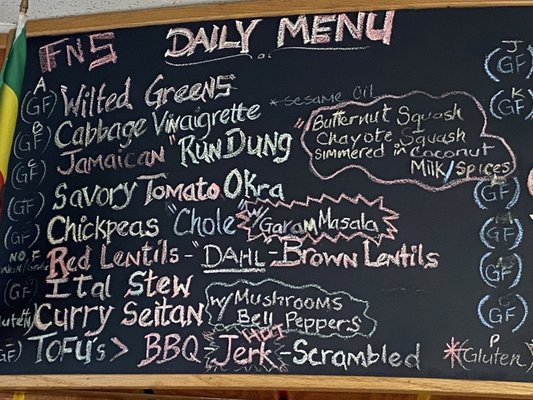 FNS DAILY MENU
A
GF Wilted Greens *SESAME OIL
B
GF Cabbage Vinaigrette
C
GF Jamaican "RUN DUNG"
Butternut Squash
Chayote Squash
simmered in Coconut
Milk/Spices
GF Savory Tomato Okra
GF Chickpeas "Chole" w/ Garam Masala
NO F
Red Lentils - "DAHL - Brown Lentils
GF Ital Stew
Curry Seitan
w/ Mushrooms
Bell Peppers
GF TOFU's > BBQ HOT Jerk - Scrambled
J
GF
K
GF
GF
GF
GF
GF
P
*Gluten